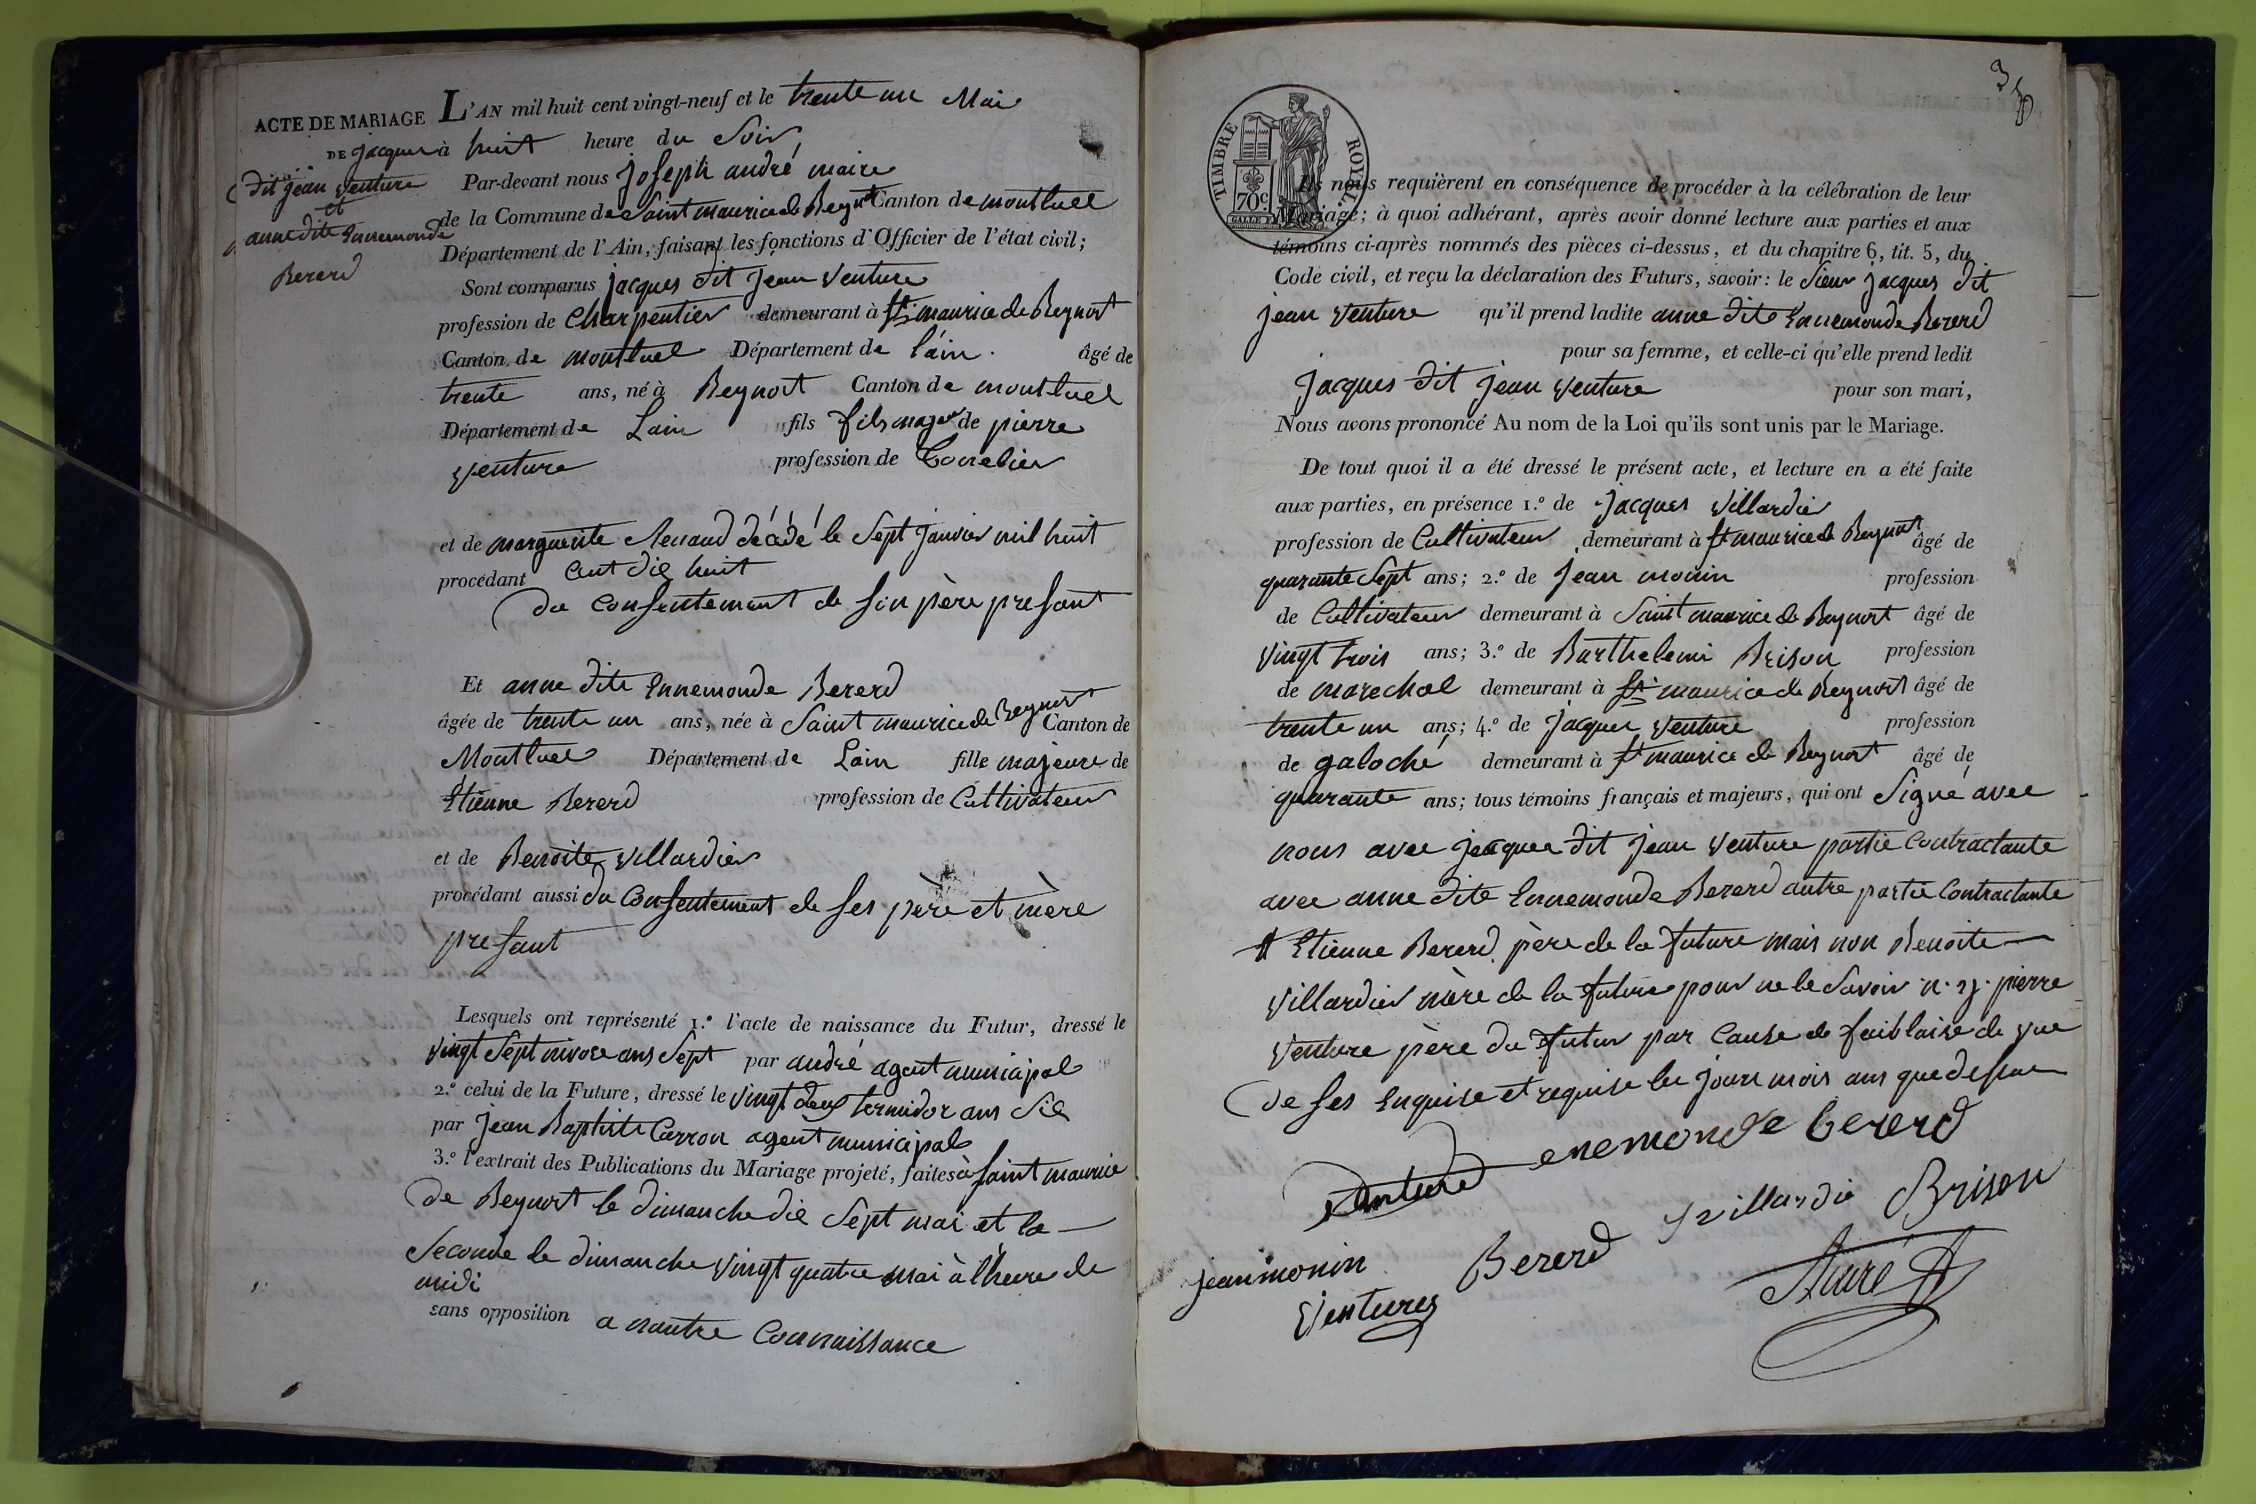 ACTE DE MARIAGE
DE Jacques
dit jean venture
et
anne dite Ennemonde
Bererd
L'AN mil huit cent vingt-neuf et le trente un Mai
à huit heure du Soir
Par-devant nous joseph andré maire
de la Commune de Saint maurice de Beynost Canton de montluel
Département de l'Ain, faisant les fonctions d'Officier de l'état civil;
Sont comparus jacques dit jean venture
profession de Charpentier demeurant à St maurice de Beynost
Canton de montluel Département de l'ain. âgé de
trente ans, né à Beynost Canton de montluel
Département de Lain fils fils majeur de pierre
venture profession de
et de marguerite Renaud décédé le Sept janvier mil huit
procédant cent dix huit
du consentement de son père present
Et anne dite Ennemonde Bererd
âgée de trente un ans, née à Saint maurice de Beynost Canton de
Montluel Département de Lain fille majeure de
Etienne Bererd profession de Cultivateur
et de Benoite villardier
procédant aussi du Consentement de ses père et mère
presant
Lesquels ont représenté 1.º l'acte de naissance du Futur, dressé le
vingt Sept nivose ans Sept par andré agent municipal
2.º celui de la Future, dressé le vingt deux termidor ans Sil
par jean Baptiste Carron agent municipal
3.º l'extrait des Publications du Mariage projeté, faites à Saint maurice
de Beynost le dimanche dix Sept mai et la
Seconde le dimanche vingt quatre mai à l'heure de
midi
sans opposition a nautre Connaissance
35
TIMBRE ROYAL
70 c.
Ils nous requièrent en conséquence de procéder à la célébration de leur
Mariage; à quoi adhérant, après avoir donné lecture aux parties et aux
témoins ci-après nommés des pièces ci-dessus, et du chapitre 6, tit. 5, du
Code civil, et reçu la déclaration des Futurs, savoir: le Sieur jacques dit
jean venture qu'il prend ladite anne dite Ennemonde Bererd
pour sa femme, et celle-ci qu'elle prend ledit
jacques dit jean venture pour son mari,
Nous avons prononcé Au nom de la Loi qu'ils sont unis par le Mariage.
De tout quoi il a été dressé le présent acte, et lecture en a été faite
aux parties, en présence 1.º de jacques villardier
profession de Cultivateur demeurant à St maurice de Beynost âgé de
quarante Sept ans; 2.º de jean monin profession
de Cultivateur demeurant à Saint maurice de Beynost âgé de
vingt trois ans; 3.º de Barthelemi Brison profession
de marechal demeurant à St maurice de Beynost âgé de
trente un ans; 4.º de jacques venture profession
de galoché demeurant à St maurice de Beynost âgé de
quarante ans; tous témoins français et majeurs, qui ont Signé avec
nous avec jacques dit jean venture partie Contractante
avec anne dite Ennemonde Bererd autre partie Contractante
et Etienne Bererd père de la future mais non Benoite
villardier mère de la future pour ne le Savoir n. y. pierre
venture père du futur par Cause de faiblaise de vue
de ses Enquise et requise les jours mois ans que dessus
venture enemonde bererd
jeanmonin Bererd villardie Brison
Ventures André